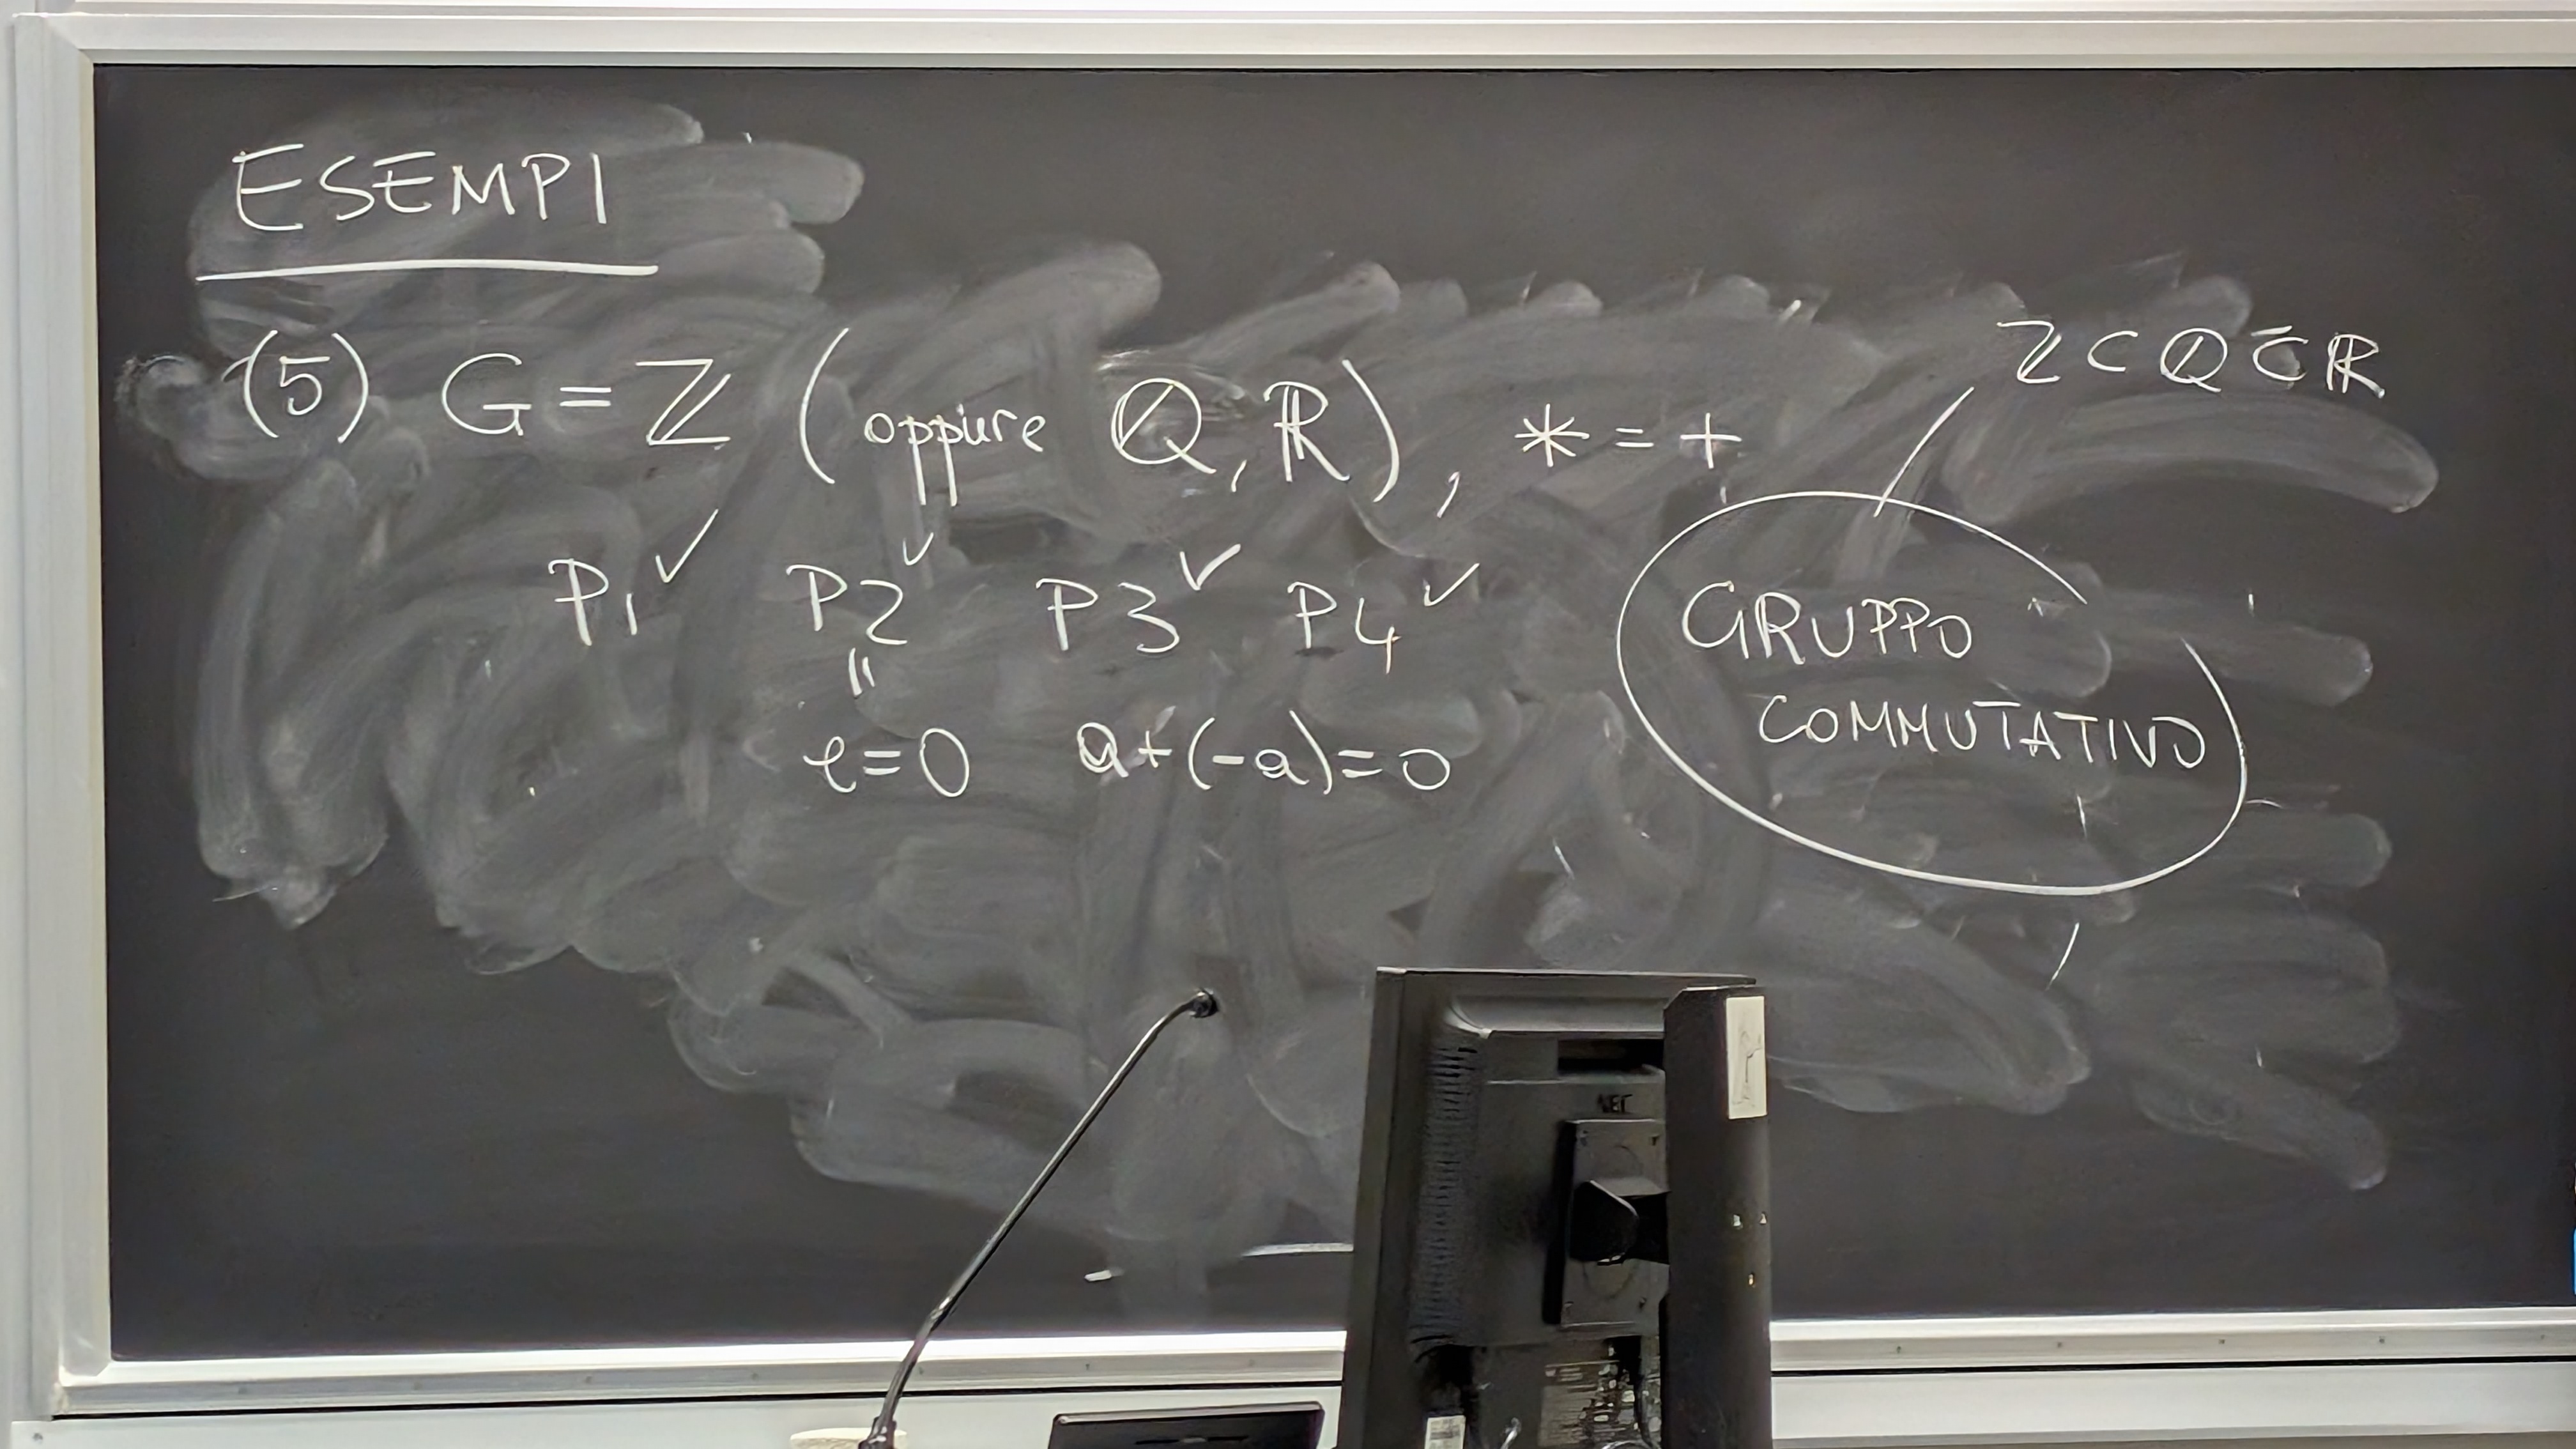 ESEMPI
(5) G = ℤ (oppure ℚ, ℝ), * = +
ℤ ⊂ ℚ ⊂ ℝ
P1 ✓ P2 ✓ P3 ✓ P4 ✓
"
e=0 a+(-a)=0
GRUPPO
COMMUTATIVO
NEC